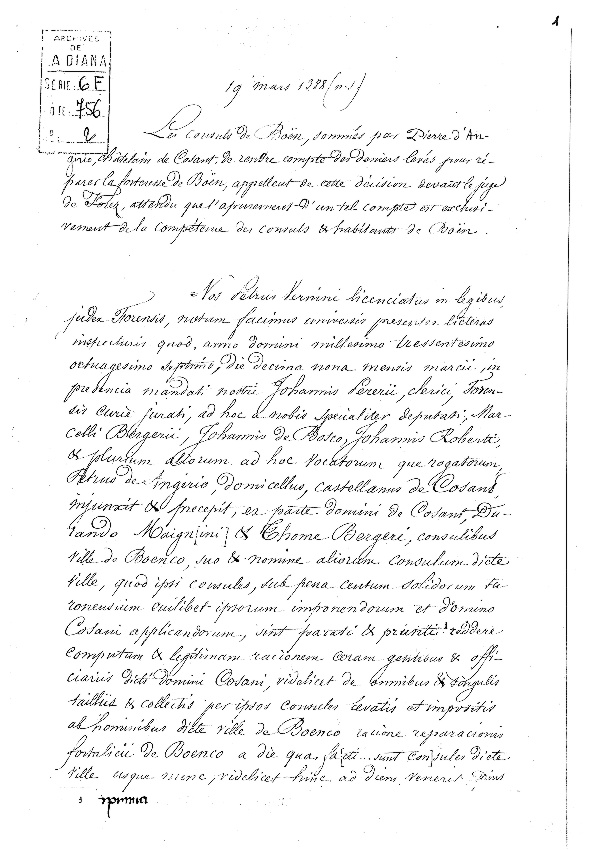 1
ARCHIVES
DE
LA DIANA
SÉRIE: 6 E
756
2
19 mars 1388 (n. s.)
Les consuls de Boën, sommés par Pierre d'An-
girie, châtelain de Cosant, de rendre compte des deniers levés pour ré-
parer la forteresse de Boën, appellent de cette décision devant le juge
de Forez, attendu que l'apurement d'un tel compte est exclusi-
vement de la compétence des consuls & habitants de Boën.
Nos Petrus Vernini licenciatus in legibus,
judex Forensis, notum facimus universis presentes licteras
inspecturis quod, anno domini millesimo tressentesimo
octuagesimo septimo, die decima nona mensis marcii, in
presencia mandati nostri Johannis Pererii, clerici, Foren-
sis curie jurati, ad hoc a nobis specialiter deputati, Mar-
celli Bergerii, Johannis de Bosco, Johannis Roberti,
& plurium aliorum ad hoc vocatorum que rogatorum,
Petrus de Angirio, domicellus, castellanus de Cosant,
injunxit & precepit, ex parte domini de Cosant, Du-
rando Maignini & Thome Bergeri, consulibus
ville de Boenco, suo & nomine aliorum consulum dicte
ville, quod ipsi consules, sub pena centum solidorum tu-
ronensium cuilibet ipsorum imponendorum et domino
Cosani applicandorum, sint parati & prunti 1 reddere
computum & legitimam racionem coram gentibus & offi-
ciariis dicti domini Cosani, videlicet de omnibus & singulis
tailliis & collectis per ipsos consules levatis et impositis
ab hominibus dicte ville de Boenco racione reparacionis
fortalicii de Boenco a die qua facti sunt consules dicte
ville usque nunc, videlicet hinc ad diem veneris